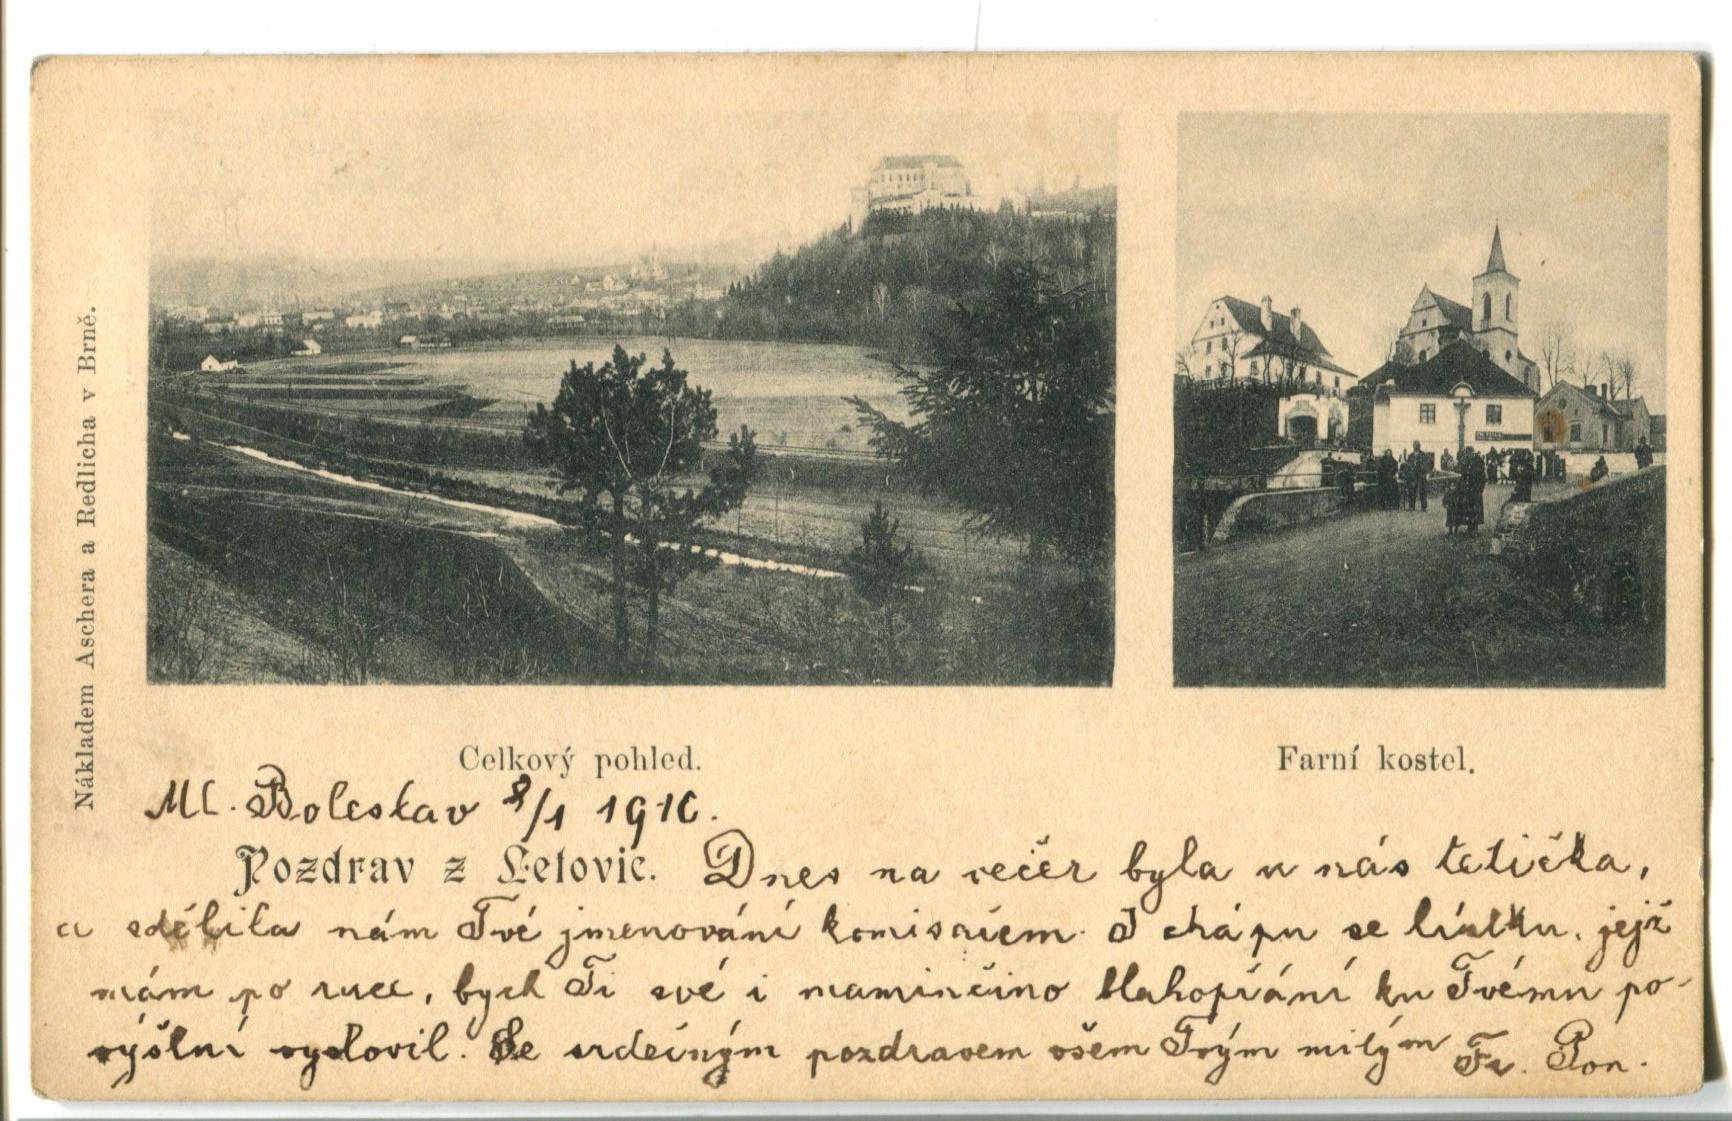 Nákladem Aschera a Redlicha v Brně.
Celkový pohled.
Farní kostel.
Ml. Boleslav 8/1 1910.
Pozdrav z Letovic. Dnes na večer byla u nás tetička,
a sdělila nám Tvé jmenování komisařem. I chápu se lístku, jejž
mám po ruce, bych Ti své i maminčino blahopřání ku Tvému po-
výšení vyslovil. Se srdečným pozdravem všem Tvým milým Fr.